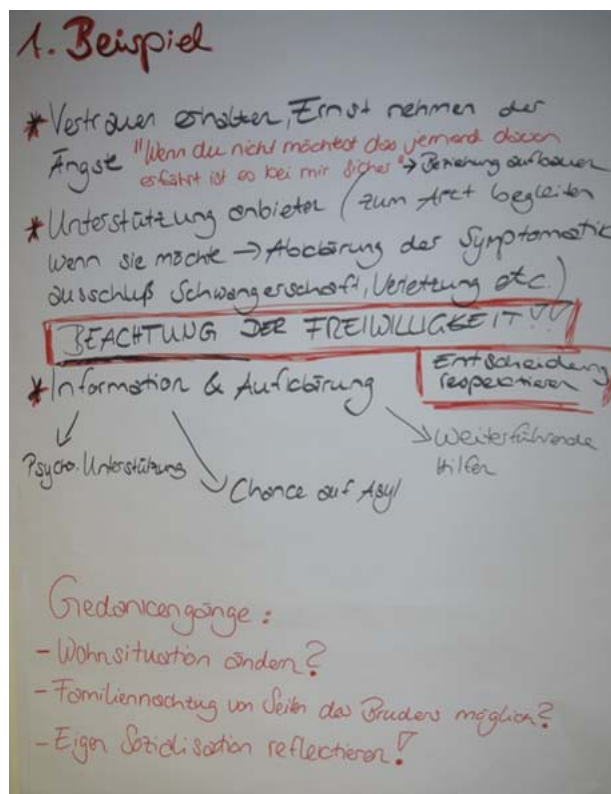 1. Beispiel
* Vertrauen erhalten, Ernst nehmen der
Ängste "Wenn du nicht möchtest das jemand davon
erfährt ist es bei mir sicher" → Beziehung aufbauen
* Unterstützung anbieten (zum Arzt begleiten
wenn sie möchte → Abklärung der Symptomatik
ausschluß Schwangerschaft, Verletzung etc.)
BEACHTUNG DER FREIWILLIGKEIT!!
Entscheidung
respektieren
* Information & Aufklärung
Psycho. Unterstützung
Chance auf Asyl
Weiterführende
Hilfen
Gedankengänge:
- Wohnsituation ändern?
- Familiennachzug von Seiten des Bruders möglich?
- Eigen Sozialisation reflektieren!